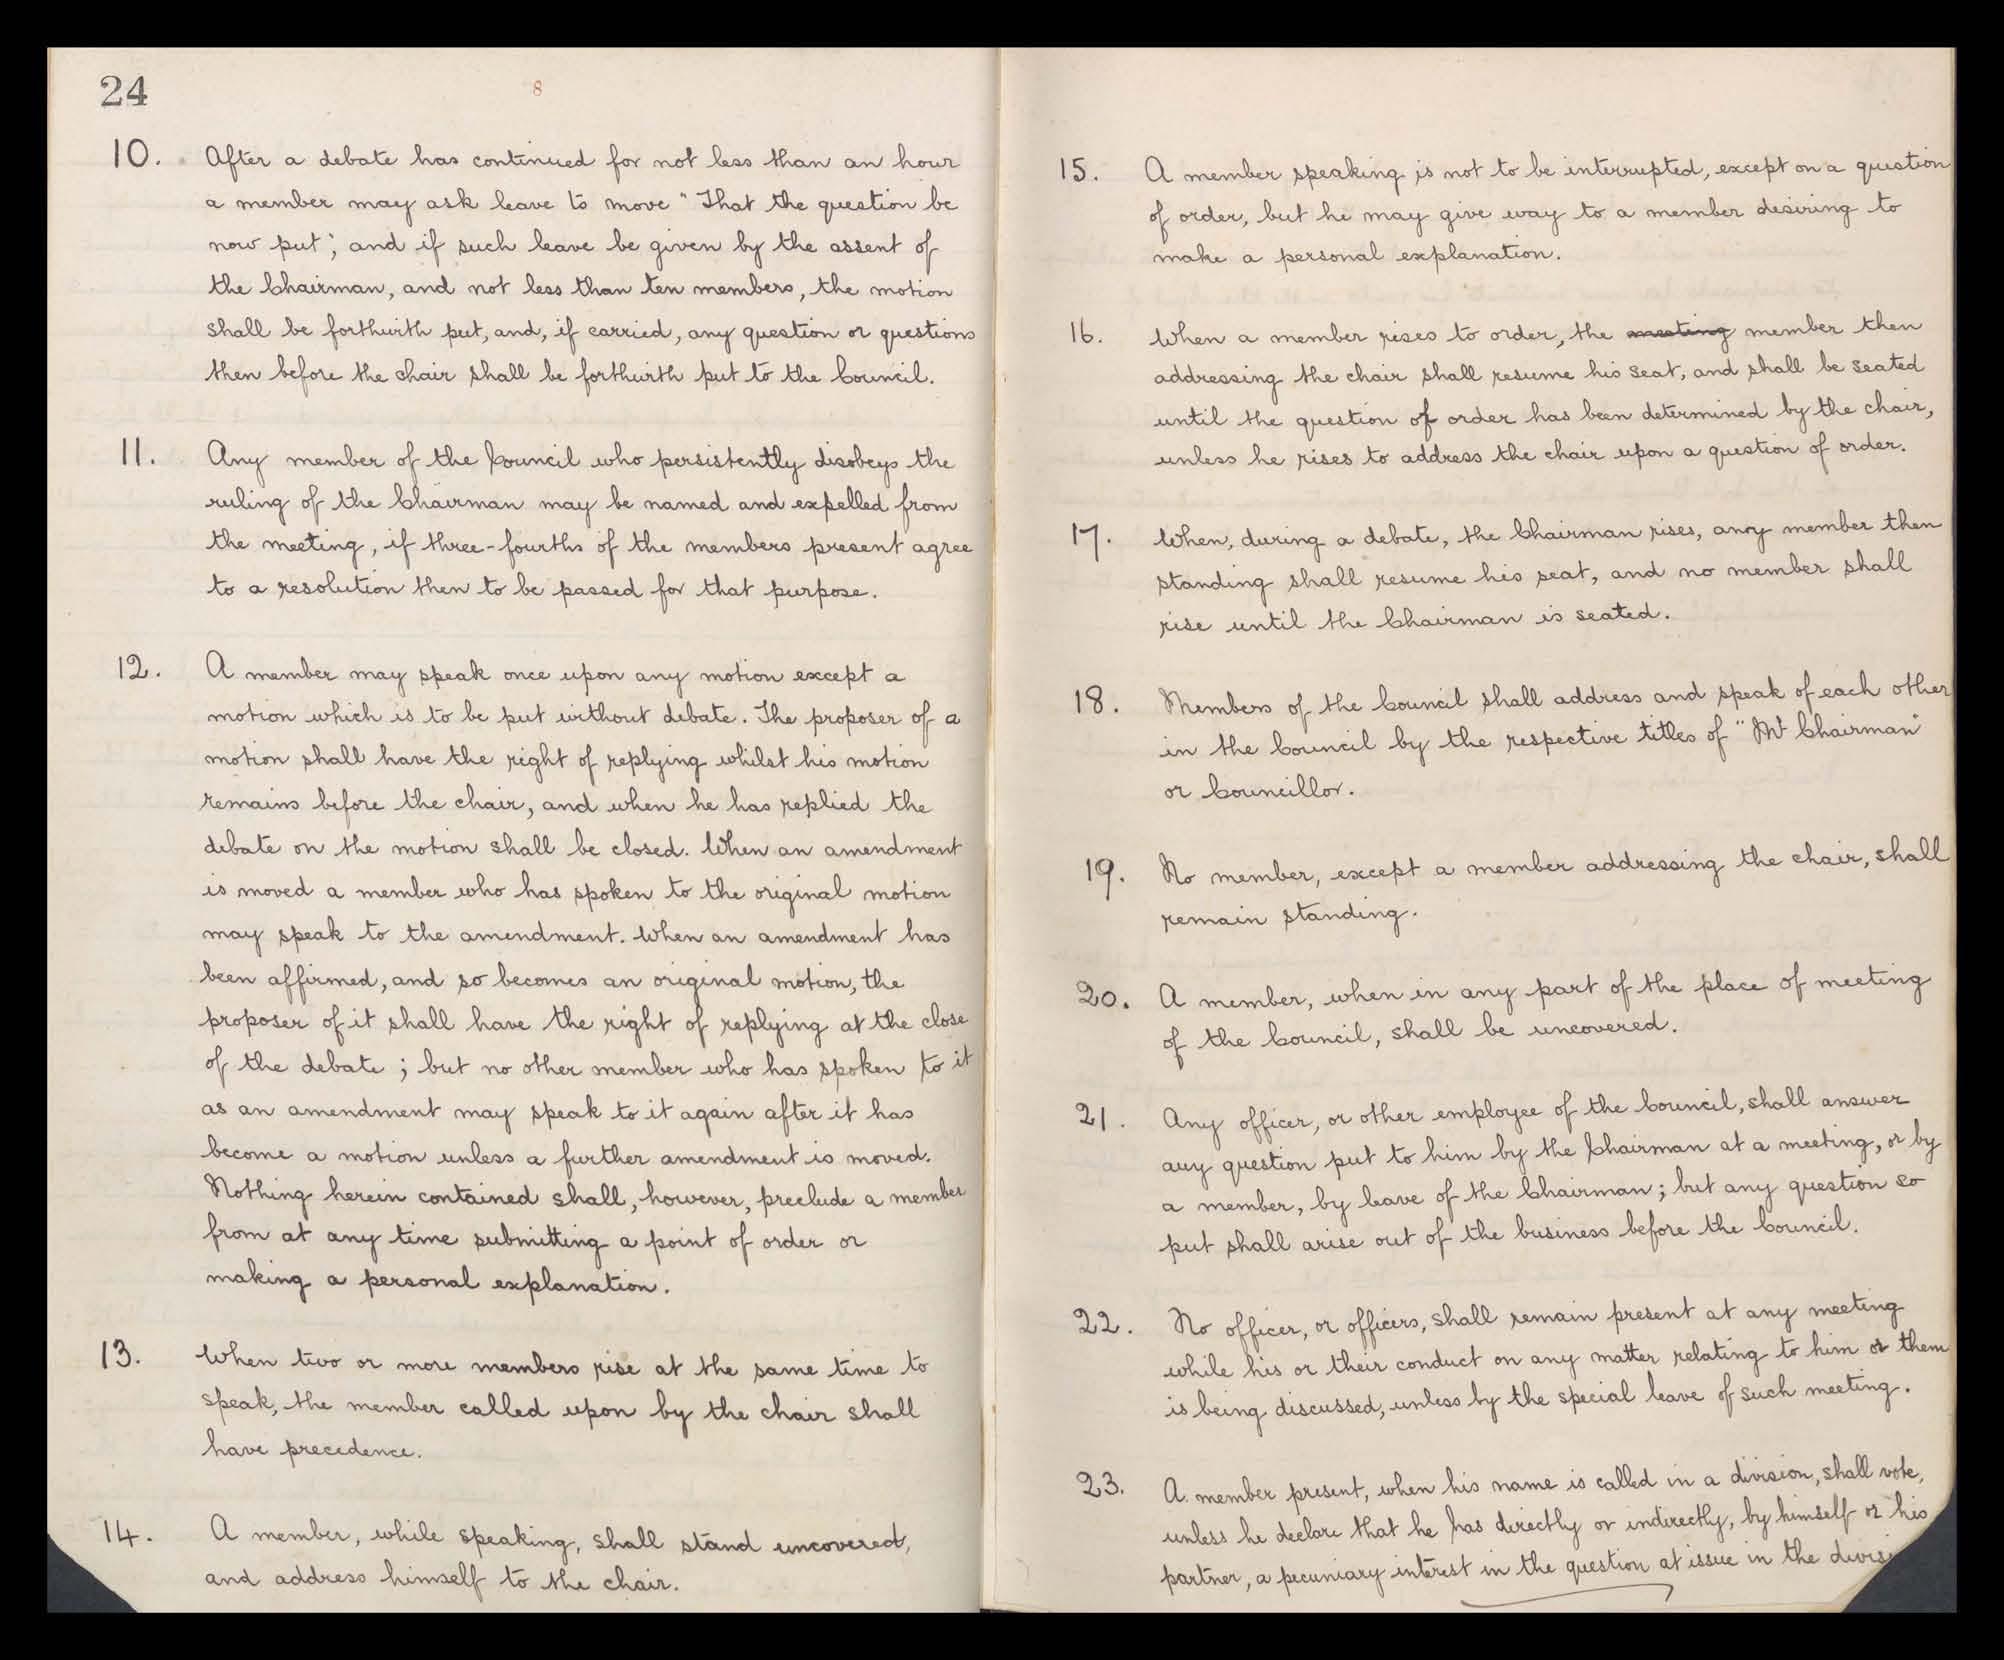 24
8
10. After a debate has continued for not less than an hour
a member may ask leave to move "That the question be
now put"; and if such leave be given by the assent of
the Chairman, and not less than ten members, the motion
shall be forthwith put, and, if carried, any question or questions
then before the chair shall be forthwith put to the Council.
11. Any member of the Council who persistently disobeys the
ruling of the Chairman may be named and expelled from
the meeting, if three-fourths of the members present agree
to a resolution then to be passed for that purpose.
12. A member may speak once upon any motion except a
motion which is to be put without debate. The proposer of a
motion shall have the right of replying whilst his motion
remains before the chair, and when he has replied the
debate on the motion shall be closed. When an amendment
is moved a member who has spoken to the original motion
may speak to the amendment. When an amendment has
been affirmed, and so becomes an original motion, the
proposer of it shall have the right of replying at the close
of the debate; but no other member who has spoken to it
as an amendment may speak to it again after it has
become a motion unless a further amendment is moved.
Nothing herein contained shall, however, preclude a member
from at any time submitting a point of order or
making a personal explanation.
13. When two or more members rise at the same time to
speak, the member called upon by the chair shall
have precedence.
14. A member, while speaking, shall stand uncovered,
and address himself to the chair.
15. A member speaking is not to be interrupted, except on a question
of order, but he may give way to a member desiring to
make a personal explanation.
16. When a member rises to order, the meeting member then
addressing the chair shall resume his seat, and shall be seated
until the question of order has been determined by the chair,
unless he rises to address the chair upon a question of order.
17. When, during a debate, the Chairman rises, any member then
standing shall resume his seat, and no member shall
rise until the Chairman is seated.
18. Members of the Council shall address and speak of each other
in the Council by the respective titles of "Mr Chairman"
or Councillor.
19. No member, except a member addressing the chair, shall
remain standing.
20. A member, when in any part of the place of meeting
of the Council, shall be uncovered.
21. Any officer, or other employee of the Council, shall answer
any question put to him by the Chairman at a meeting, or by
a member, by leave of the Chairman; but any question so
put shall arise out of the business before the Council.
22. No officer, or officers, shall remain present at any meeting
while his or their conduct on any matter relating to him or them
is being discussed, unless by the special leave of such meeting.
23. A member present, when his name is called in a division, shall vote,
unless he declare that he has directly or indirectly, by himself or his
partner, a pecuniary interest in the question at issue in the divis